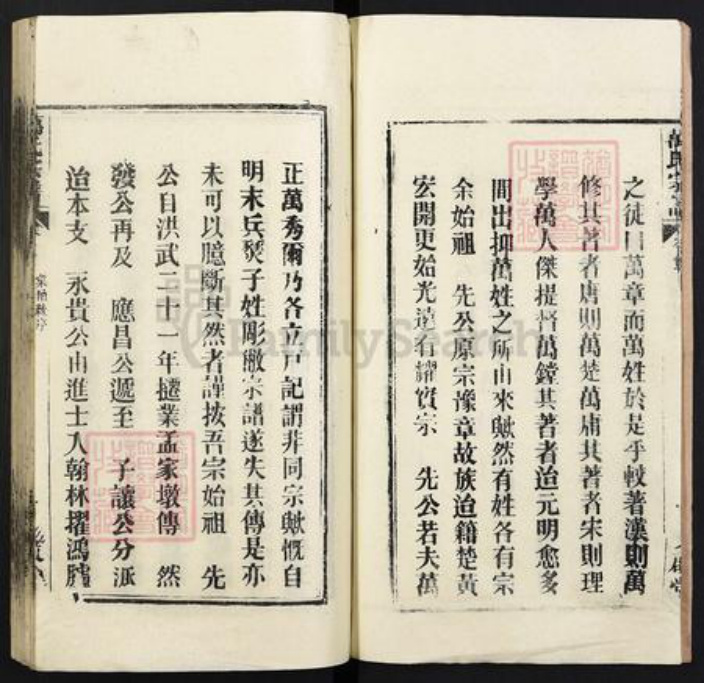 之徒曰萬章而萬姓於是乎較著漢則萬
修其著者唐則萬楚萬庸其著者宋則理
學萬人傑提督萬鏜其著者迨元明愈多
間出抑萬姓之所由來歟然有姓各有宗
余始祖 先公原宗豫章故族迨籍楚黃
宏開更始光遠有耀實宗 先公若夫萬
正萬秀爾乃各立戶記謂非同宗歟慨自
明末兵燹子姓彫敝宗譜遂失其傳是亦
未可以臆斷其然者謹按吾宗始祖 先
公自洪武二十一年㨗業孟家墩傳 然
發公再及 應昌公遞至 子讓公分派
迨本支 永貴公由進士入翰林擢鴻臚
FamilySearch